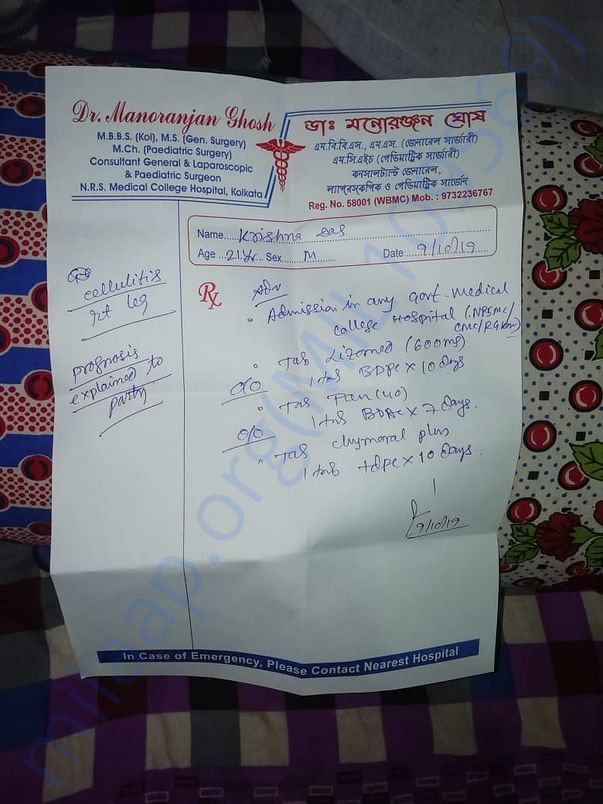 Dr. Manoranjan Ghosh
M.B.B.S. (Kol), M.S. (Gen. Surgery)
M.Ch. (Paediatric Surgery)
Consultant General & Laparoscopic
& Paediatric Surgeon
N.R.S. Medical College Hospital, Kolkata
ডাঃ মনোরঞ্জন ঘোষ
এম.বি.বি.এস., এম.এস. (জেনারেল সার্জারী)
এম.সি.এইচ (পেডিয়াট্রিক সার্জারী)
কনসালট্যান্ট জেনারেল,
ল্যাপ্রস্কোপিক ও পেডিয়াট্রিক সার্জেন
Reg. No. 58001 (WBMC) Mob. : 9732236767
Name Krishna Das
Age 21 yr. Sex M Date 9/10/19
cellulitis
rt leg
prognosis
explained to
party
Rx Adv
Admission in any Govt. Medical
College Hospital (NRSMC/
CMC/RGKar)
Tab Lizomed (600mg)
1 tab BDPC x 10 days
Tab Pan (40)
1 tab BDAC x 7 days.
Tab chymoral plus
1 tab tdpc x 10 days.
9/10/19
In Case of Emergency, Please Contact Nearest Hospital